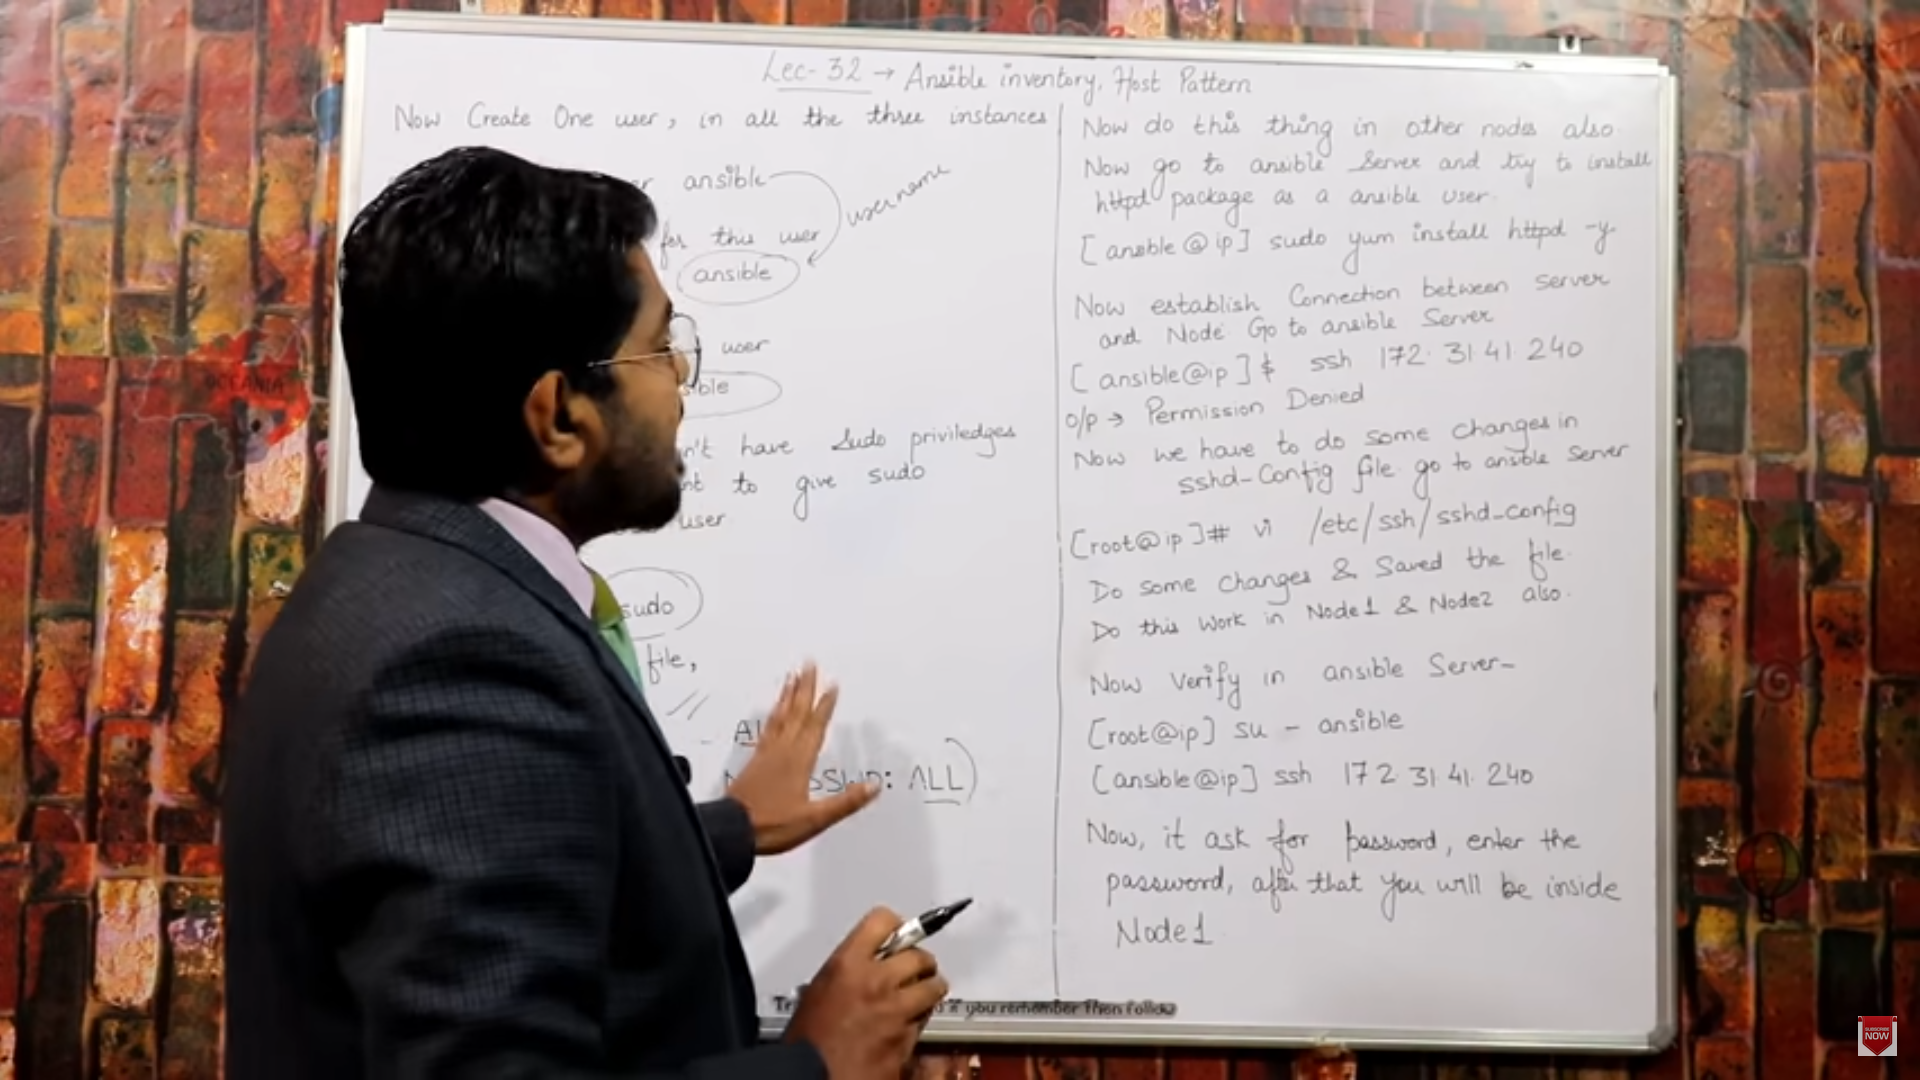 Lec-32 → Ansible inventory, Host Pattern
Now Create One user, in all the three instances
ansible
username
for this user
ansible
user
n't have Sudo priviledges
to give sudo
user
sudo
file,
: ALL)
Now do this thing in other nodes also.
Now go to ansible Server and try to install
httpd package as a ansible user.
[ansble@ip] sudo yum install httpd -y.
Now establish Connection between server
and Node Go to ansible Server
[ansible@ip]$ ssh 172.31.41.240
o/p → Permission Denied
Now we have to do some changes in
sshd-Config file. go to ansible Server
[root@ip]# vi /etc/ssh/sshd-config
Do some changes & Saved the file.
Do this work in Node1 & Node2 also.
Now Verify in ansible Server-
[root@ip] su - ansible
[ansible@ip] ssh 172.31.41.240
Now, it ask for password, enter the
password, after that you will be inside
Node1
if you remember Then follow
OCEANIA
SUBSCRIBE
NOW